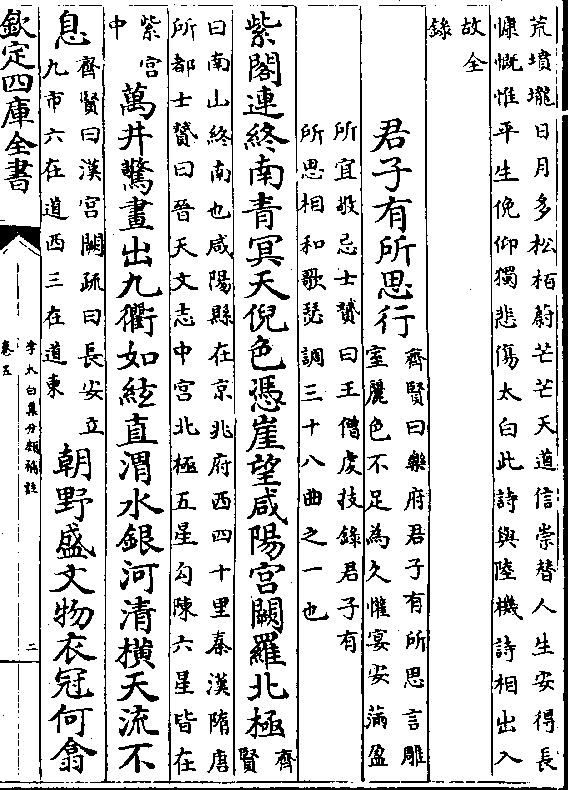 荒墳壠日月多松栢蔚芒芒天道信崇替人生安得長
慷慨惟平生俛仰獨悲傷太白此詩與陸機詩相出入
故全
錄
君子有所思行
齊賢曰樂府君子有所思言雕
室麗色不足為久懽宴安滿盈
所宜敬忌士贇曰王僧虔技錄君子有
所思相和歌瑟調三十八曲之一也
紫閣連終南青冥天倪色憑崖望咸陽宮闕羅北極
齊
賢
曰南山終南也咸陽縣在京兆府西四十里秦漢隋唐
所都士贇曰晉天文志中宮北極五星勾陳六星皆在
紫宮
中
萬井驚畫出九衢如絃直渭水銀河清橫天流不
息
齊賢曰漢宮闕疏曰長安立
九市六在道西三在道東
朝野盛文物衣冠何翕
欽定四庫全書
李太白集分類補註
卷五
二